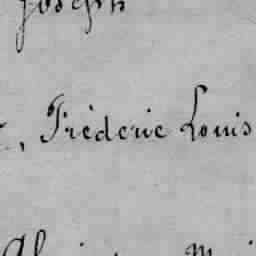 Joseph
, Fréderic Louis